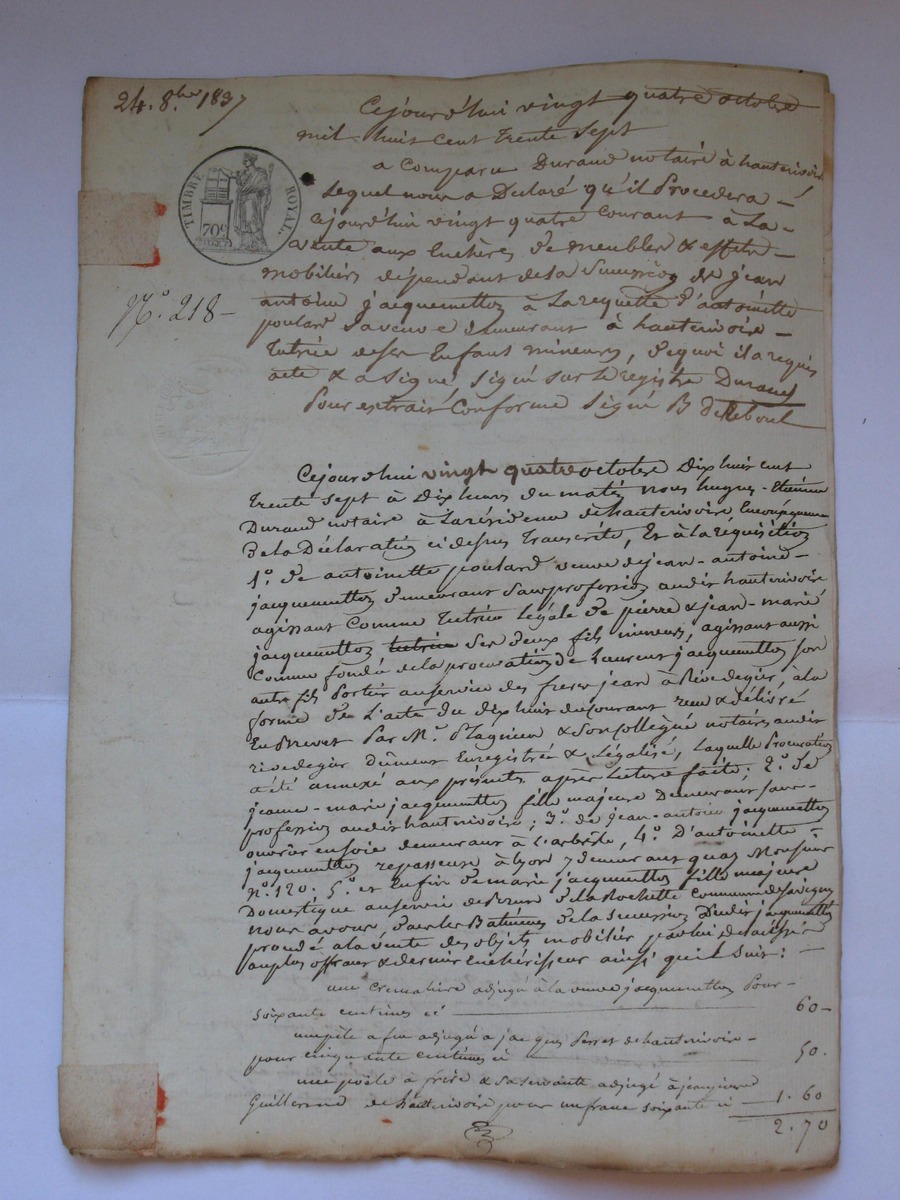 24. 8.bre 1837
Cejourd'hui vingt quatre octobre
mil huit cent trente sept
a Comparu Durand notaire à hauterivoire
Lequel nous a Declaré qu'il Procedera
cejourd'hui vingt quatre Courant à La
vente aux Encheres de meubles & effets
mobiliers dépendant de la Succession de jean
antoine jacquemetton à La requette d'antoinette
poulard sa veuve demeurant à hauterivoire
Tutrice de ses Enfant mineurs, de quoi il a requis
acte & a Signé, Signé sur le registre Durand
Pour extrait Conforme Signé B de Reboul
TIMBRE ROYAL
70c
N.o 218
Cejourd'hui vingt quatre octobre Dix huit cent
trente sept à Dix heures du matin nous hugues-Etienne
Durand notaire à La résidence de hauterivoire En conséquence
De la Déclaration ci dessus Transcrite, Et à la réquisition
1.o de antoinette poulard veuve de jean-antoine
jacquemetton demeurant sans profession audit hauterivoire
agissant Comme Tutrice Légale de pierre & jean-marie
jacquemetton tutrice ses deux fils mineurs, agissant aussi
Comme fondé de la procuration de Laurent jacquemetton son
autre fils Portier au service des freres jean à Rivedegier, à la
forme de L'acte du dix huit du Courant reçu & délivré
En Brevet Par M.e & Son Collegue notaires audit
rivedegier Dument Enregistrée & Légalisé, Laquelle Procuration
a été annexé aux présentes apres Lecture faite; 2.o de
jeanne-marie jacquemetton fille majeure Demeurant sans
profession audit hauterivoire; 3.o de jean-antoine jacquemetton
ouvrier en soie demeurant à L'arbrêle, 4.o D'antoinette
jacquemetton repasseuse à Lyon y demeurant quai Monsieur
N.o 120. 5.o et Enfin de marie jacquemetton fille majeure
Domestique au service de de la Rochette Commune de Savigny
nous avons, dans les Batiments de la succession Dudit jacquemetton
procédé à la vente des objets mobiliers par lui délaissés
au plus offrant & dernier Enchérisseur ainsi qu'il Suit:
une Cremalliere adjugé à la veuve jacquemetton Pour
soixante centimes ci 60
une pêle a feu adjugé à jacques Perret de hauterivoire
pour cinquante centimes ci 50.
une poële à frire & sa servante adjugé à jean pierre
de hauterivoire pour un franc soixante ci 1. 60
2. 70